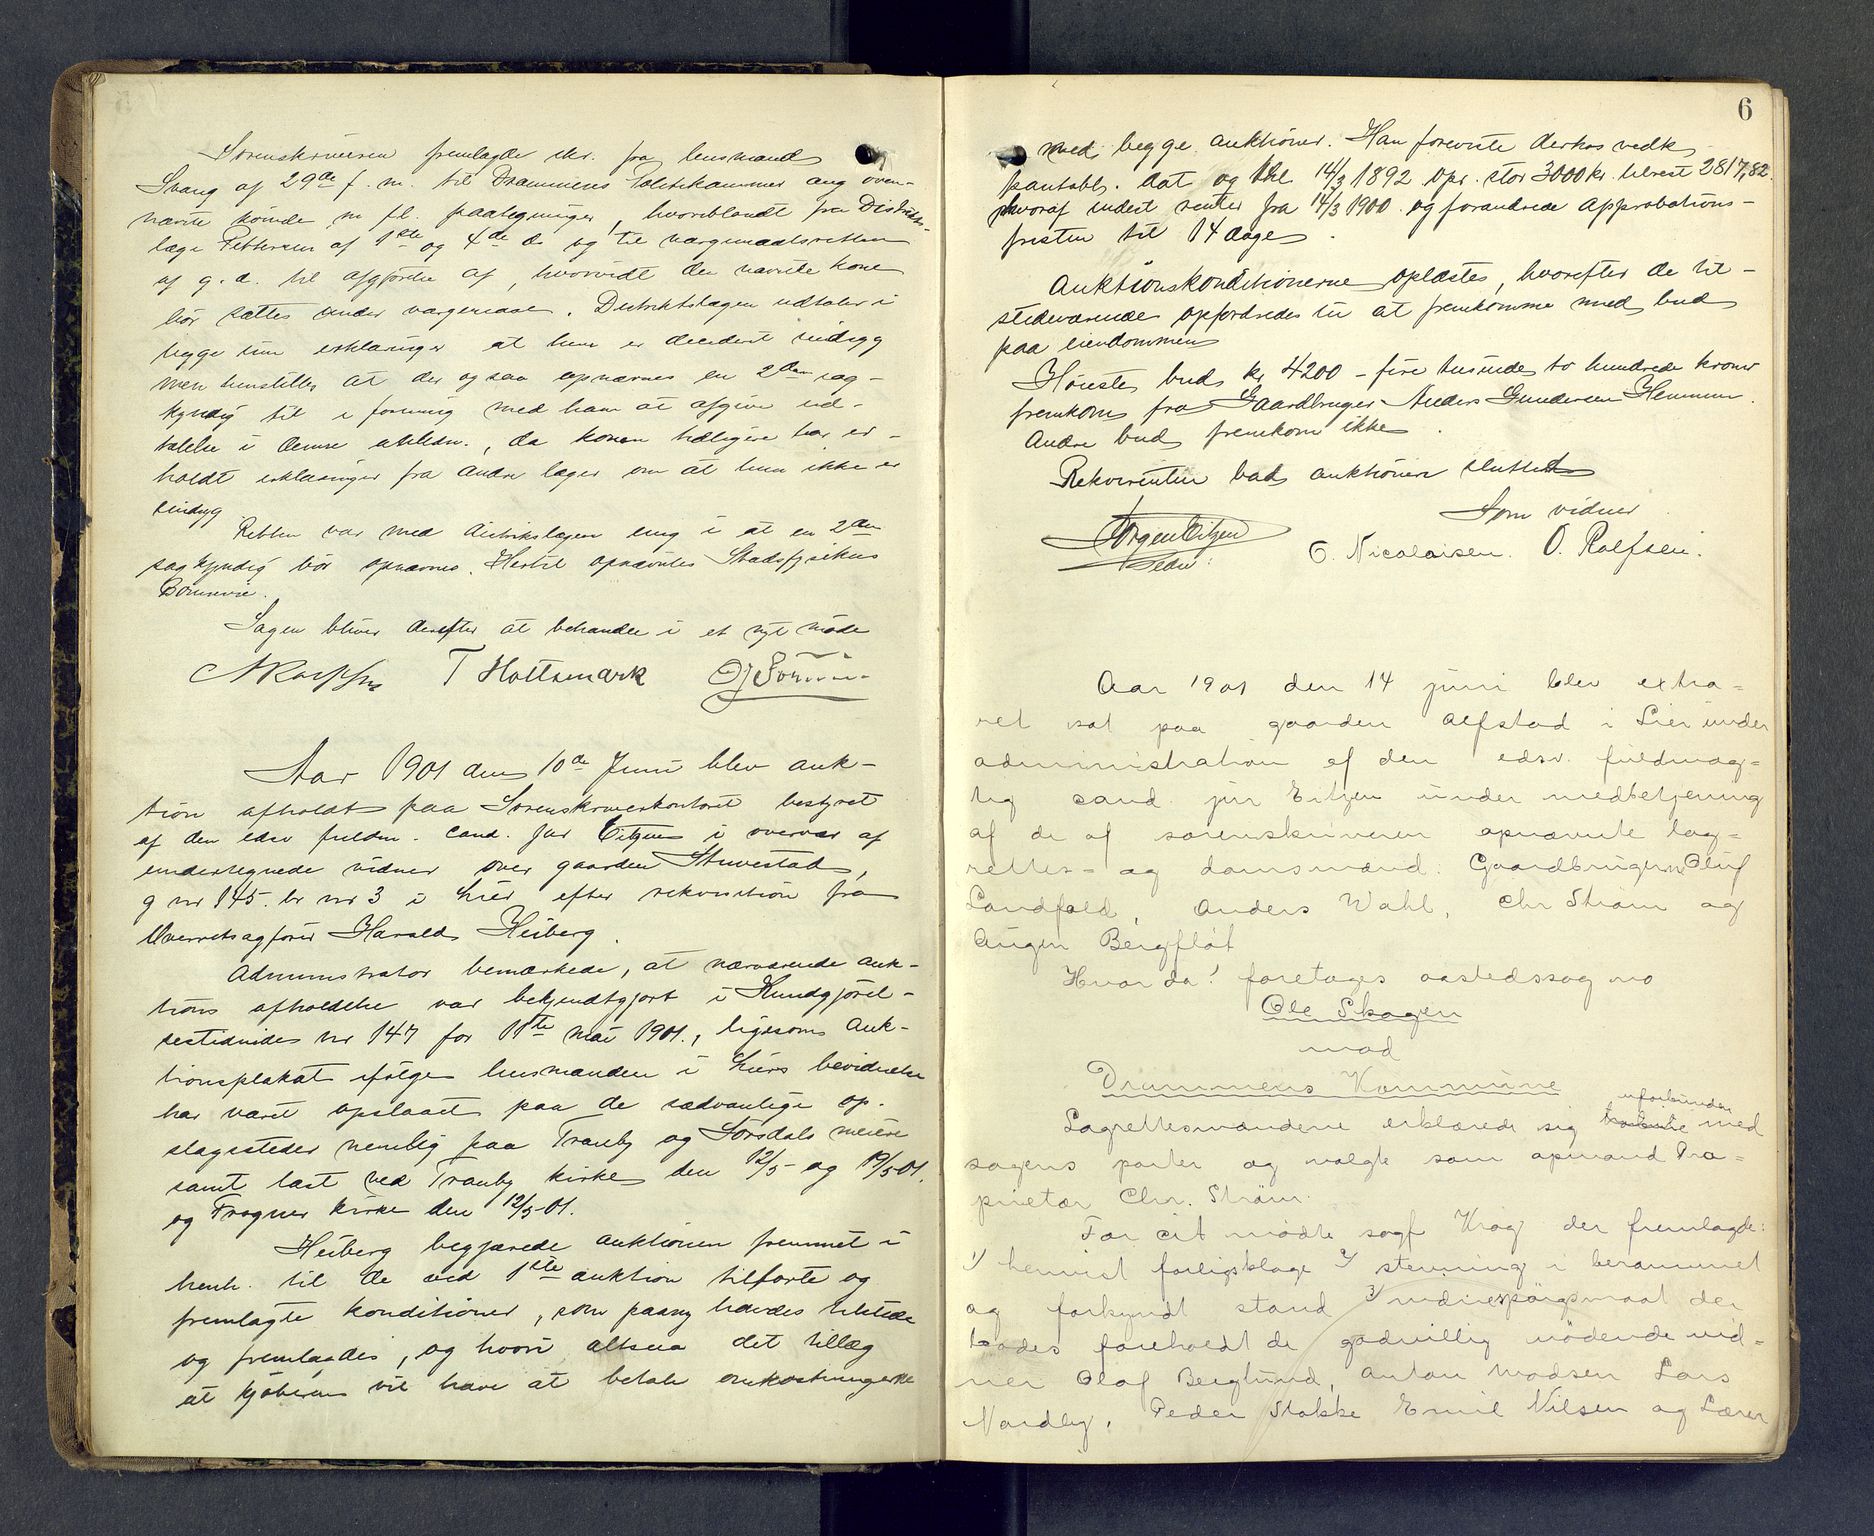 Sorenskriveren fremlagde skr. fra lensmand
Svang af 29de f. m. til Drammens Politikammer ang oven-
nævnte kvinde m fl. paategninger, hvoriblandt fra Distrikts-
læge Pettersen af 1ste og 4de ds og til værgemaalsretten
af g. d. til afgjørelse af, hvorvidt den nævnte kone
bør sættes under værgemaal. Distriktslægen udtaler i
begge sine erklæringer at hun er decideret sindsyg
men henstiller at der ogsaa opnævnes en 2den sag-
kyndig til i forening med ham at afgive ud-
talelse i denne anledn., da konen tidligere har er-
holdt erklæringer fra andre læger om at hun ikke er
sindsyg
Retten var med distriktslægen enig i at en 2den
sagkyndig bør opnævnes. Hertil opnævntes Stadsfysikus
Sagen bliver derefter at behandle i et nyt møde
T Holtsmark
Aar 1901 den 10de Juni blev auk-
tion afholdt paa Sorenskriverkontoret bestyret
af den edsv fuldm. cand. jur Eitzen i overvær af
undertegnede vidner over gaarden Stuvestad,
g nr 145. br nr 3 i Lier efter rekvisition fra
Overretsagfører Harald Heiberg.
Administrator bemærkede, at nærværende auk-
tions afholdelse var bekjendtgjort i Kundgjørel-
sestidende nr 147 for 11te mai 1901., ligesom auk-
tionsplakat ifølge lensmanden i Liers bevidnelse
har været opslaaet paa de sædvanlige op-
slagssteder nemlig paa Tranby og Sørsdals meieri
samt læst ved Tranby kirke den 12/5- og 19/5 01.
og Frogner kirke den 12/5-01.
Heiberg begjærede auktionen fremmet i
henh. til de ved 1ste auktion tilførte og
fremlagte konditioner, som paany havdes tilstede
og fremlagdes, og hvori altsaa det tillæg
at kjøberen vil have at betale omkostningerne
6
med begge auktioner. Han foreviste derhos vedk
pantobl. dat og thl 14/3 1892 opr. stor 3000 kr. tilrest 2817,82.
hvoraf indest renter fra 14/3 1900 og forandrede approbations-
fristen til 14 dage.
Auktionskonditionerne oplæstes, hvorefter de til-
stedeværende opfordredes til at fremkomme med bud
paa eiendommen
Høieste bud kr 4200 - fire tusinde to hundrede kroner
fremkom fra Gaardbruger Anders Gundersen Hennum.
Andre bud fremkom ikke.
Rekvirenten bad auktionen sluttet
Som vidner
Jørgen Eitzen
C. Nicolaisen. O. Rolfsen.
Aar 1901 den 14 juni blev extra-
ret sat paa gaarden Alfstad i Lier under
administration af den edsv. fuldmæg-
tig cand. jur Eitzen under medbetjening
af de af sorenskriveren opnævnte lag-
rettes- og domsmænd: Gaardbrugerne Oluf
Landfald, Anders Wahl, Chr Strøm og
Augen Bergfløt
Hvorda! foretages aastedssag no
Ole Skogen
mod
Drammens Kommune
uforbunden
Lagrettesmændene erklærede sig med
sagens parter og valgte som opmand Pro-
prietær Chr. Strøm.
For cit mødte sagf Krog der fremlagde:
1/ henvist forligsklage 2/ stevning i berammet
og forkyndt stand 3/ vidnespørgsmaal der
bades foreholdt de godvillig mødende vid-
ner Olaf Berglund, Anton Madsen Lars
Nordby, Peder Stokke Emil Nilsen og Lærer